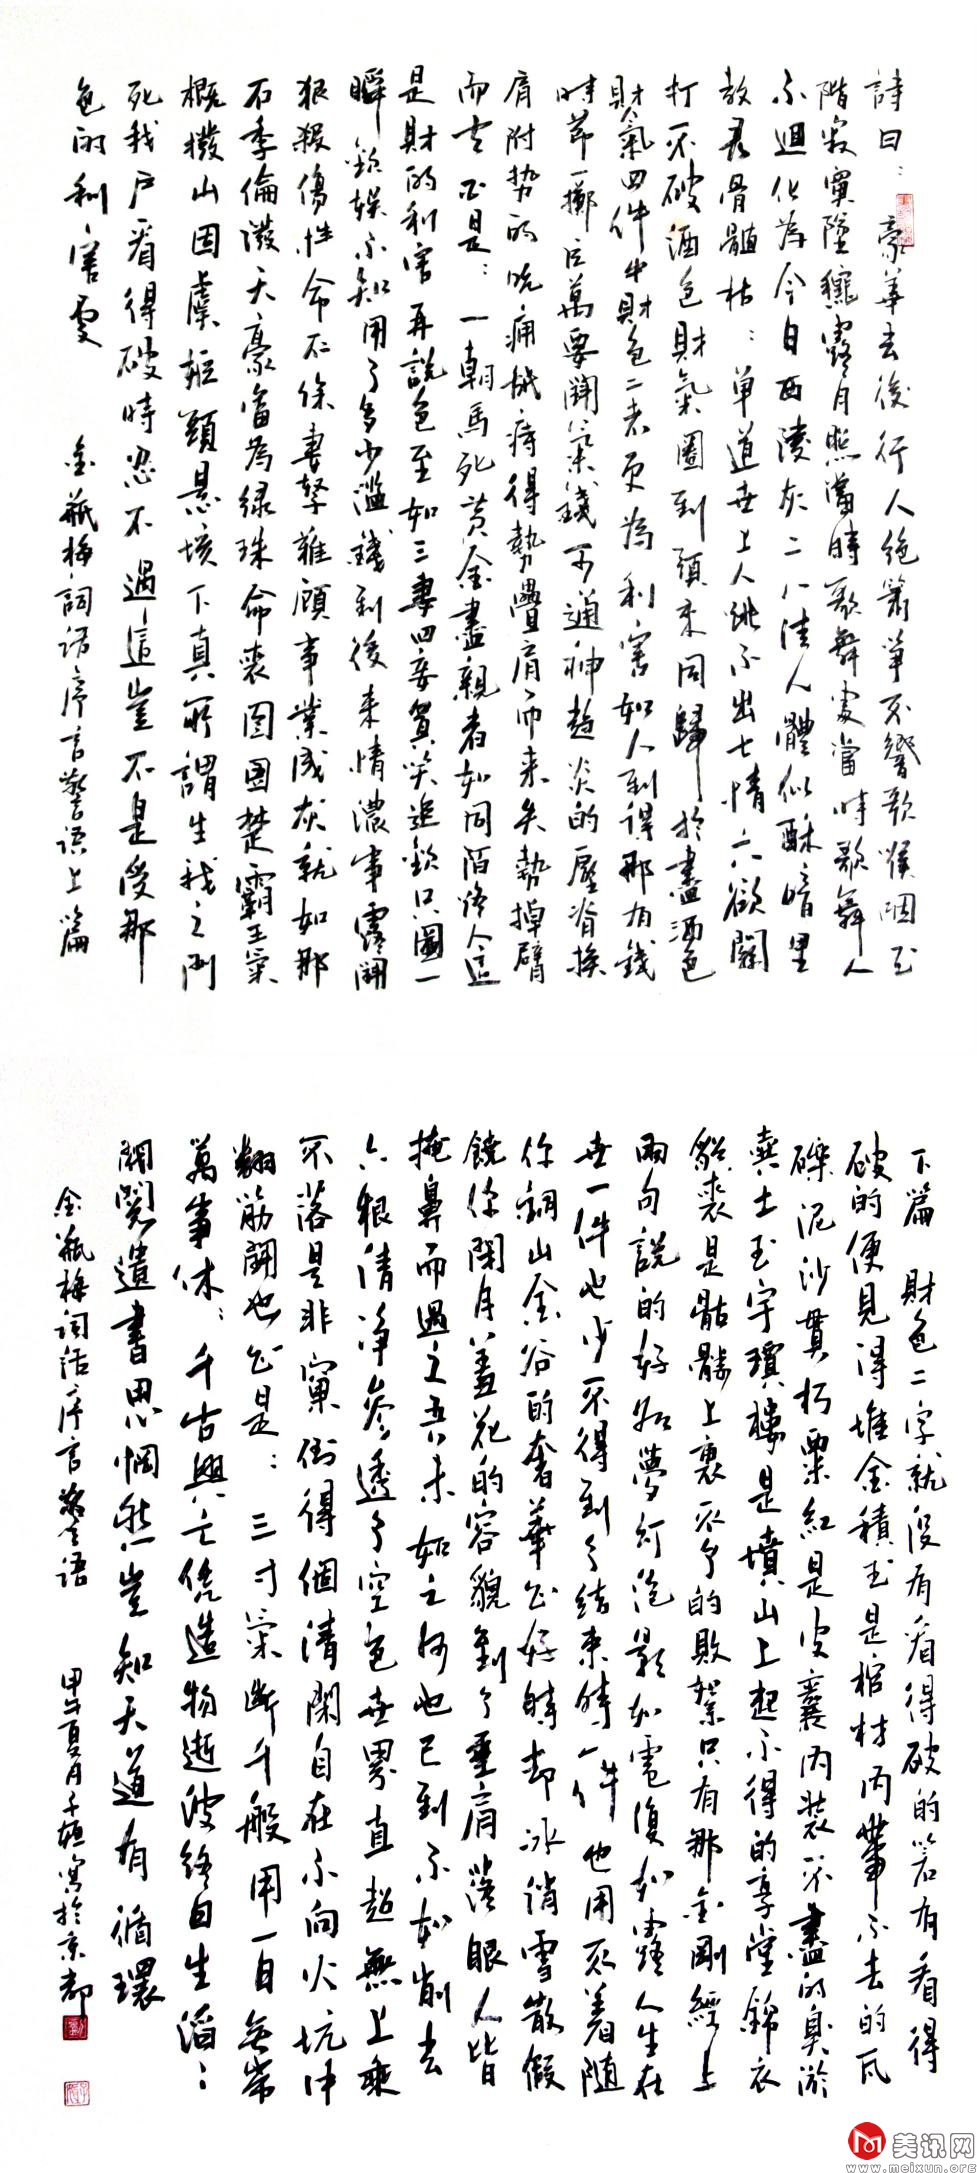 詩曰：豪華去後行人絶簫筝不響歌喉咽玉
階寂寞墜龝露月照當時歌舞處當時歌舞人
不迴化為今日西陵灰二八佳人體似酥暗里
教君骨髓枯：單道世上人跳不出七情六欲關
打不破酒色財氣圈到頭來同歸於盡酒色
財氣四件中財色二者更為利害如人到得那有錢
時節一擲巨萬要鬪氣錢可通神趨炎的壓脊挨
肩附势的吮癰舐痔得勢疊肩而来失勢掉臂
而去正是：一朝馬死黄金盡親者如同陌路人這
是財的利害再説色至如三妻四妾買笑追歡只圖一
瞬歡娱不知用了多少濫錢到後来情濃事露鬪
狠殺傷性命不保妻孥難顧事業成灰就如那
石季倫潑天豪富為緑珠命喪囹圄楚霸王氣
概拔山因虞姬頭懸垓下真所謂生我之門
死我户看得破時忍不過這豈不是受那
色的利害處
金瓶梅詞話序言警語上篇
下篇 財色二字就没有看得破的若有看得
破的便見得堆金積玉是棺材内帶不去的瓦
礫泥沙貫朽粟紅是皮囊内裝不盡的臭淤
糞土玉宇瓊樓是墳山上起不得的享堂錦衣
貂裘是骷髏上裹不了的敗絮只有那金剛經上
兩句説的好如夢幻泡影如電復如露人生在
世一件也少不得到了結束時一件也用不着隨
你銅山金谷的奢華正好時却冰消雪散假
饒你閉月羞花的容貌到了垂肩落眼人皆
掩鼻而過之吾未如之何也已到不如削去
六根清净參透了空色世界直超無上乘
不落是非窠倒得個清閑自在不向火坑中
翻筋鬪也正是：三寸氣斷千般用一日無常
萬事休：千古興亡造物逝波終自生滔：
閑閲遺書思惘然豈知天道有循環
金瓶梅詞話序言警語 甲午夏月寫於京都
美讯网
www.meixun.org